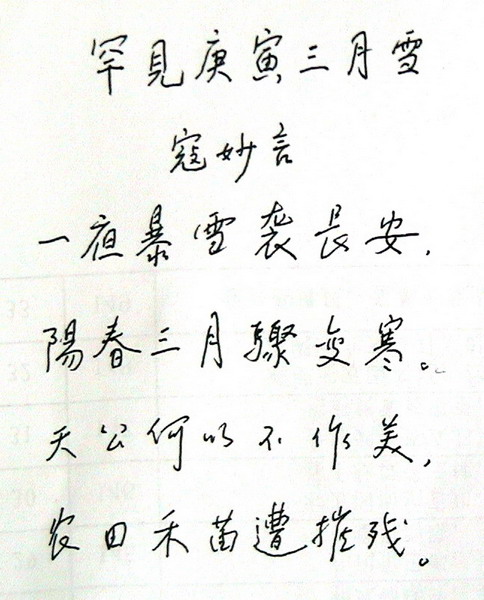 罕見庚寅三月雪
寇妙言
一夜暴雪袭長安,
陽春三月驟变寒。
天公何以不作美,
农田禾苗遭摧残。